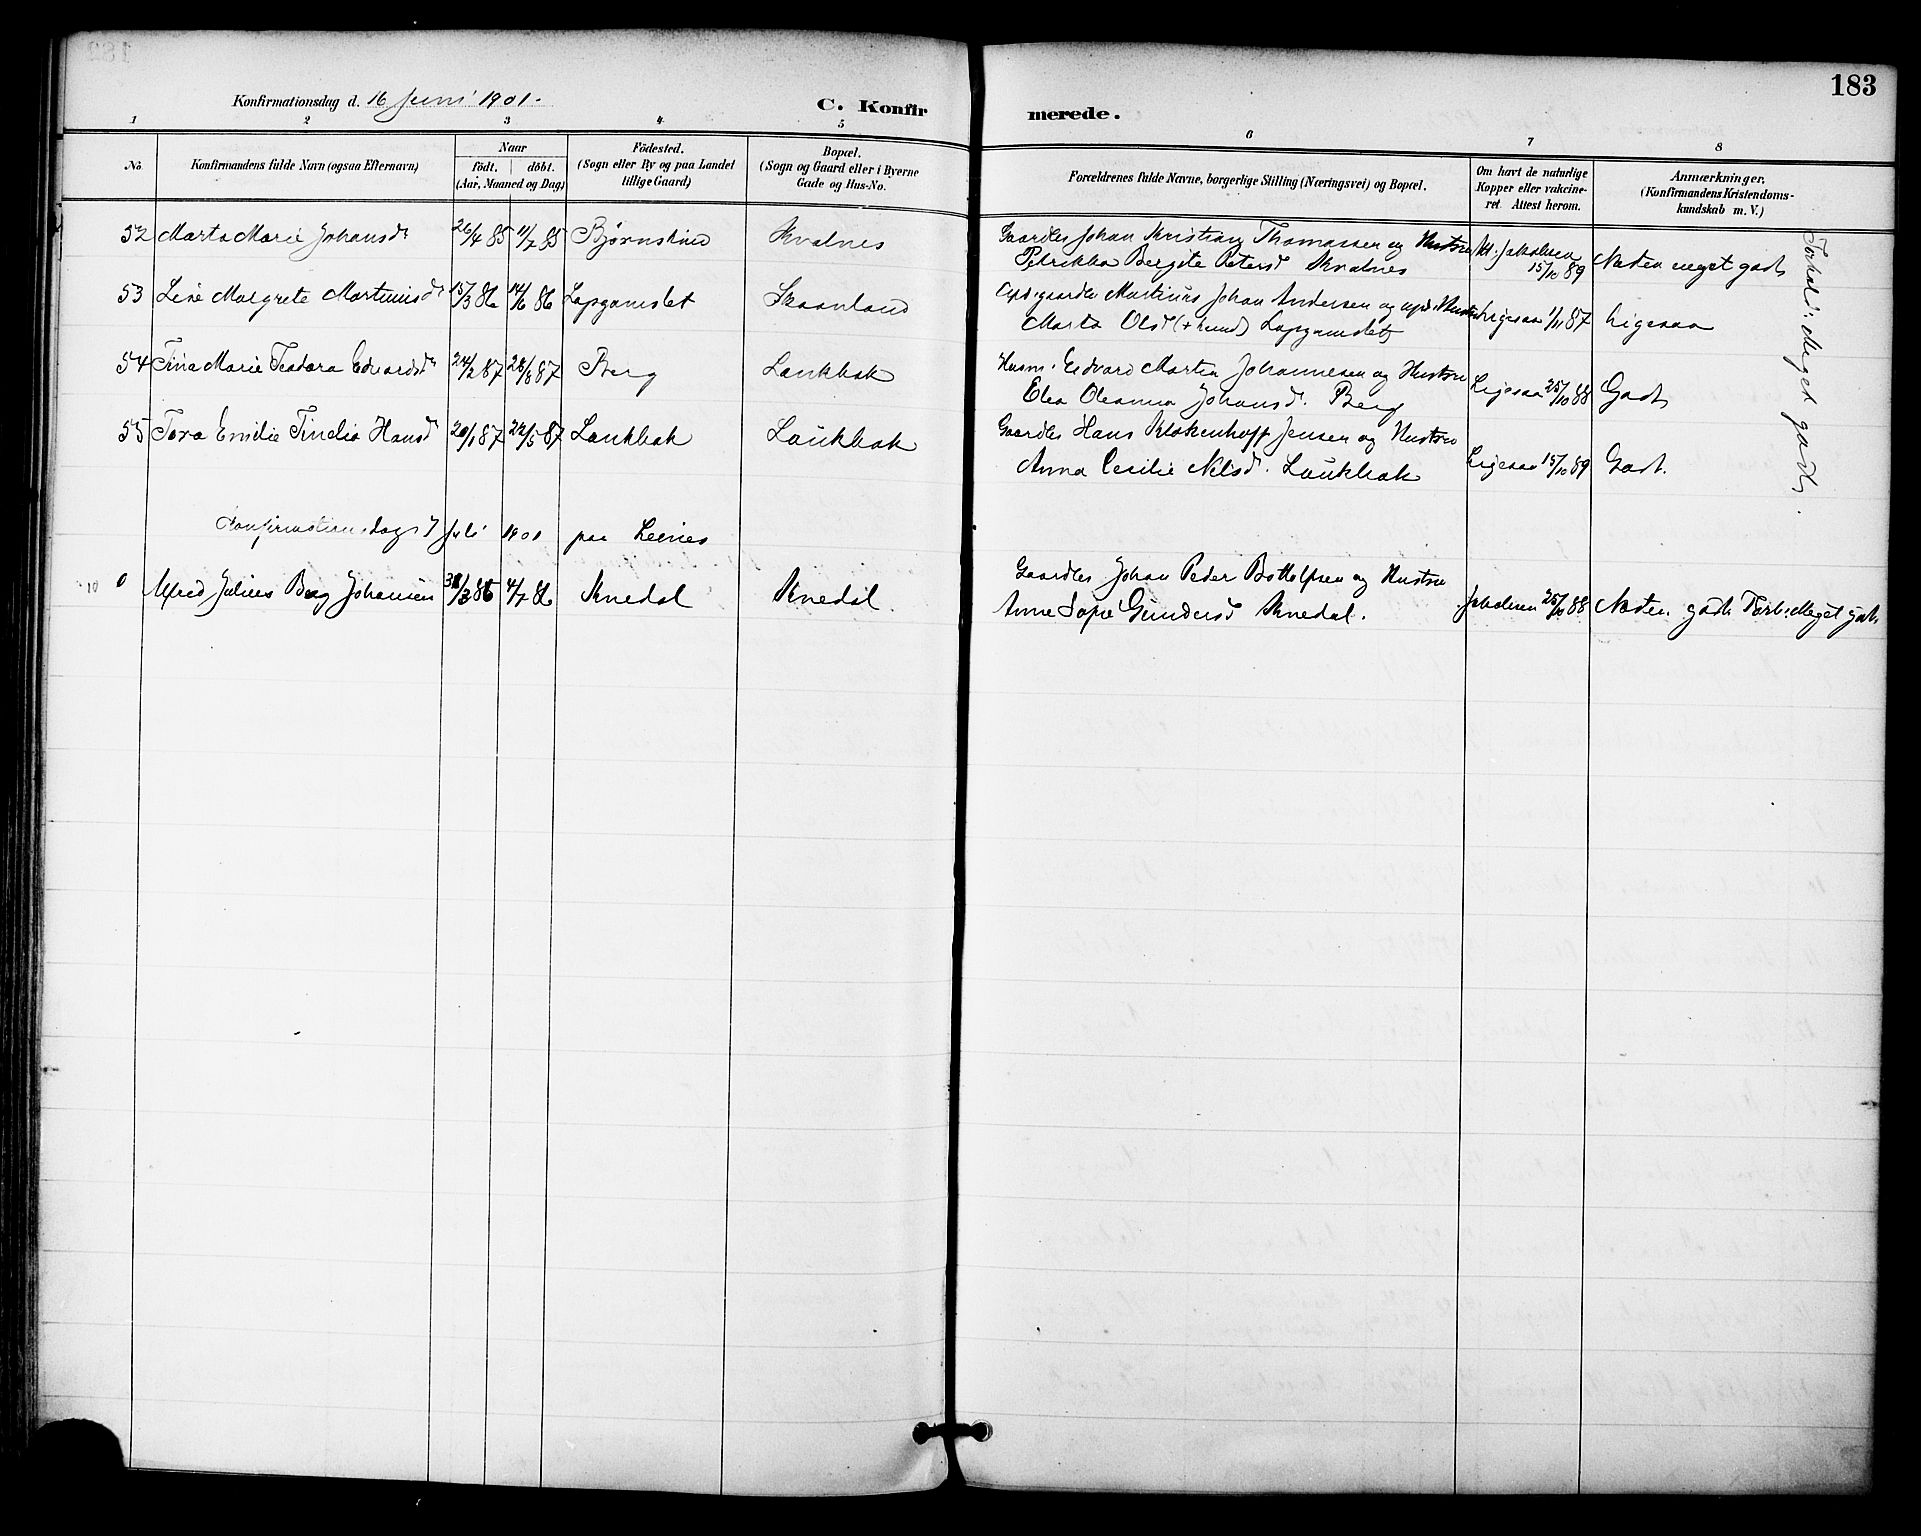 183
Konfirmationsdag d. 16 Juni 1901.
C. Konfirmerede.
1 2 3 4 5 6 7 8
No.
Konfirmandens fulde Navn (ogsaa Efternavn)
Naar
födt. döbt.
(Aar, Maaned og Dag)
Födested.
(Sogn eller By og paa Landet
tillige Gaard)
Bopæl.
(Sogn og Gaard eller i Byerne
Gade og Hus-No.
Forældrenes fulde Navne, borgerlige Stilling (Næringsvei) og Bopæl.
Om havt de naturlige
Kopper eller vakcine-
ret. Attest herom.
Anmærkninger,
(Konfirmandens Kristendoms-
kundskab m. V.)
52 Marta Marie Johansd. 26/4 85 11/7 85 Bjørnskind Kvalnes Gaardbr. Johan Kristian Thomassen og Hustru Jakobsen
Petrikka Bergite Petersd. Kvalnes 15/10 89 Næsten meget godt
53 Lise Margrete Martinusd. 15/3 86 14/6 86 Lapgamslet Skaanland Martinus Johan Andersen og Ligesaa 1/11 87 Ligesaa
Marta Olsd. Lapgamslet
54 Tina Marie Teodora Edvardsd. 24/2 87 28/8 87 Berg Laukbak Husm. Edvard Martin Johannesen og Hustru
Elea Oleanna Johansd. Berg Ligesaa 25/10 88 Godt
55 Tora Emilie Tinelia Hansd. 20/1 87 22/5 87 Laukbak Laukbak Gaardbr. Hans Klokenhoff Jensen og Hustru
Anna Cecilie Nilsd. Laukbak Ligesaa 15/10 89 Godt.
Forhold: Meget godt.
Konfirmationsdag 7 Juli 1901 paa Leines
Alfred Julius Berg Johansen 31/3 86 4/7 86 Knedal Knedal. Gaardbr. Johan Peder Bottolfsen og Hustru
Anne Sofie Gundersd. Knedal. Jakobsen 25/10 88 Næsten godt. Forh: Meget godt